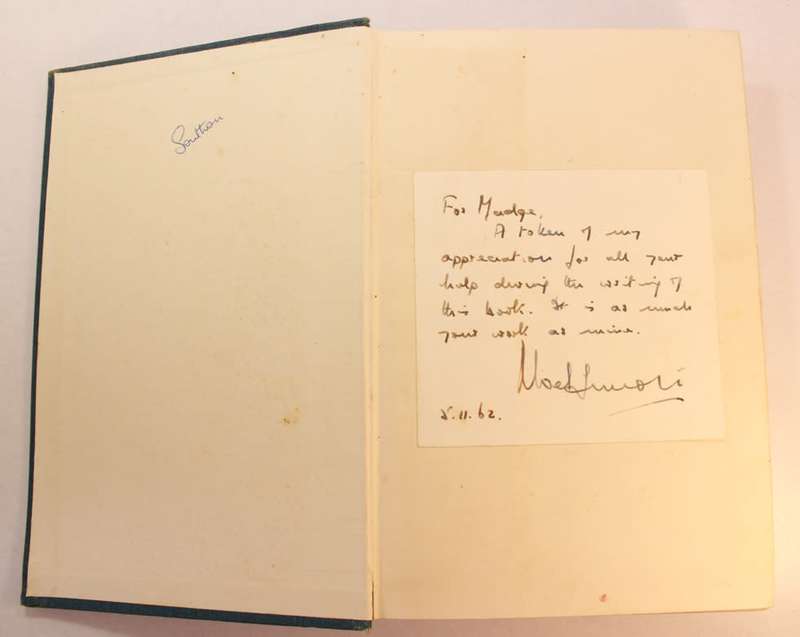 For Madge,
A token of my
appreciation for all your
help during the writing of
this book. It is as much
your work as mine.
Noel Simon
5.11.62.